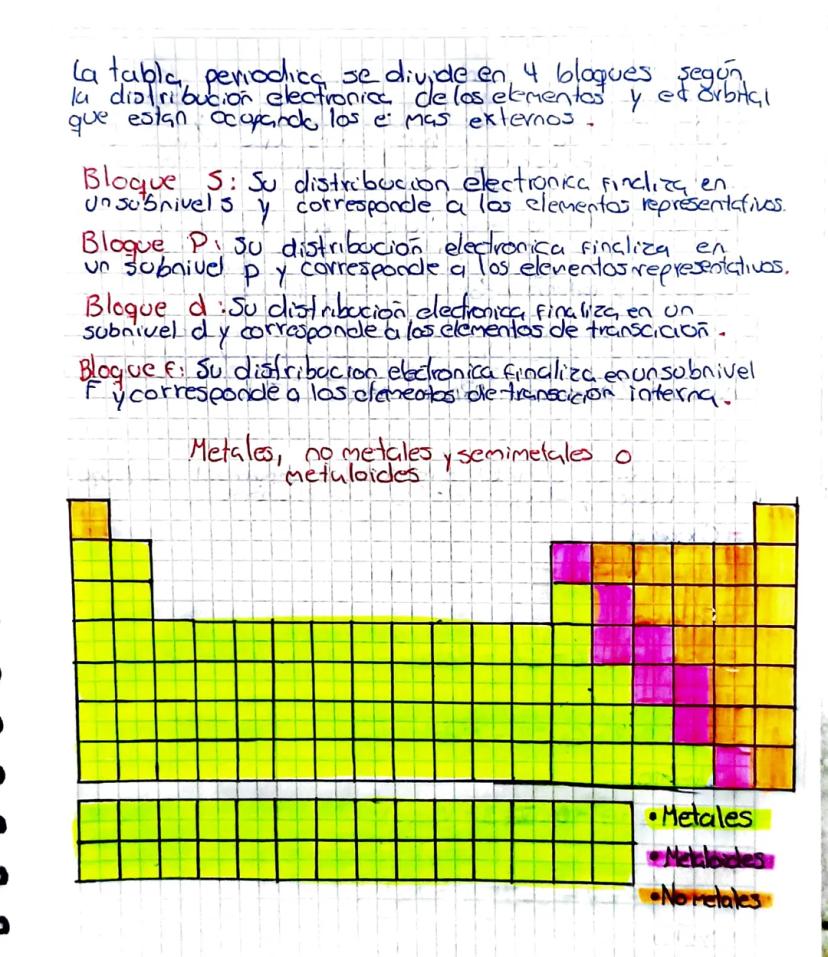 La tabla periodica se divide en 4 bloques según
la distribución electronica de los elementos y el orbital
que estan ocupando los e⁻ mas externos.
Bloque S: Su distribucion electronica finaliza en
un subnivel s y corresponde a los elementos representativos.
Bloque P: Su distribución electronica finaliza en
un subnivel p y corresponde a los elementos representativos.
Bloque d: Su distribución electronica finaliza en un
subnivel d y corresponde a los elementos de transcición.
Bloque f: Su distribucion electronica finaliza en un subnivel
F y corresponde a los elementos de transcición interna.
Metales, no metales y semimetales o
metaloides
• Metales
• Metaloides
• No metales